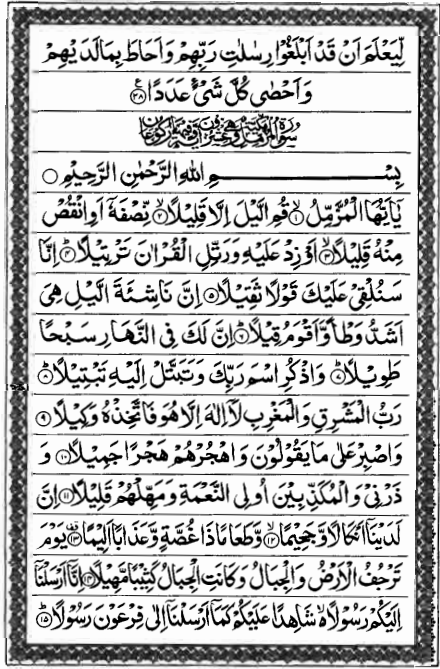 لِّيَعْلَمَ اَنْ قَدْ اَبْلَغُوْا رِسٰلٰتِ رَبِّهِمْ وَاَحَاطَ بِمَا لَدَيْهِمْ
وَاَحْصٰى كُلَّ شَىْءٍ عَدَدًا ﴿۲۸﴾
بِسْمِ اللهِ الرَّحْمٰنِ الرَّحِيْمِ
يٰۤاَيُّهَا الْمُزَّمِّلُ ۙ﴿۱﴾ قُمِ الَّيْلَ اِلَّا قَلِيْلًا ۙ﴿۲﴾ نِّصْفَهٗۤ اَوِ انْقُصْ
مِنْهُ قَلِيْلًا ۙ﴿۳﴾ اَوْ زِدْ عَلَيْهِ وَرَتِّلِ الْقُرْاٰنَ تَرْتِيْلًا ؕ﴿۴﴾ اِنَّا
سَنُلْقِىْ عَلَيْكَ قَوْلًا ثَقِيْلًا ﴿۵﴾ اِنَّ نَاشِئَةَ الَّيْلِ هِىَ
اَشَدُّ وَطْاً وَّاَقْوَمُ قِيْلًا ؕ﴿۶﴾ اِنَّ لَكَ فِى النَّهَارِ سَبْحًا
طَوِيْلًا ؕ﴿۷﴾ وَاذْكُرِ اسْمَ رَبِّكَ وَتَبَتَّلْ اِلَيْهِ تَبْتِيْلًا ؕ﴿۸﴾
رَبُّ الْمَشْرِقِ وَالْمَغْرِبِ لَاۤ اِلٰهَ اِلَّا هُوَ فَاتَّخِذْهُ وَكِيْلًا ﴿۹﴾
وَاصْبِرْ عَلٰى مَا يَقُوْلُوْنَ وَاهْجُرْهُمْ هَجْرًا جَمِيْلًا ﴿۱۰﴾ وَ
ذَرْنِىْ وَالْمُكَذِّبِيْنَ اُولِى النَّعْمَةِ وَمَهِّلْهُمْ قَلِيْلًا ﴿۱۱﴾ اِنَّ
لَدَيْنَاۤ اَنْكَالًا وَّجَحِيْمًا ۙ﴿۱۲﴾ وَّطَعَامًا ذَا غُصَّةٍ وَّعَذَابًا اَلِيْمًا ﴿۱۳﴾ يَوْمَ
تَرْجُفُ الْاَرْضُ وَالْجِبَالُ وَكَانَتِ الْجِبَالُ كَثِيْبًا مَّهِيْلًا ﴿۱۴﴾ اِنَّاۤ اَرْسَلْنَاۤ
اِلَيْكُمْ رَسُوْلًا ۙ شَاهِدًا عَلَيْكُمْ كَمَاۤ اَرْسَلْنَاۤ اِلٰى فِرْعَوْنَ رَسُوْلًا ؕ﴿۱۵﴾